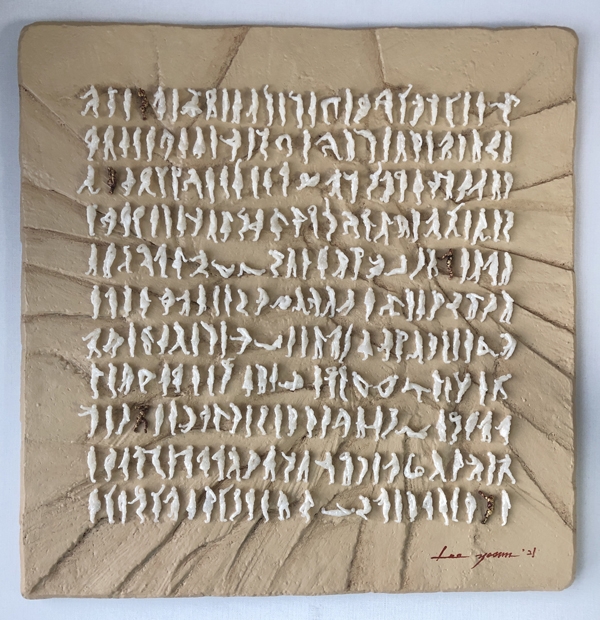 Lee yoom '21